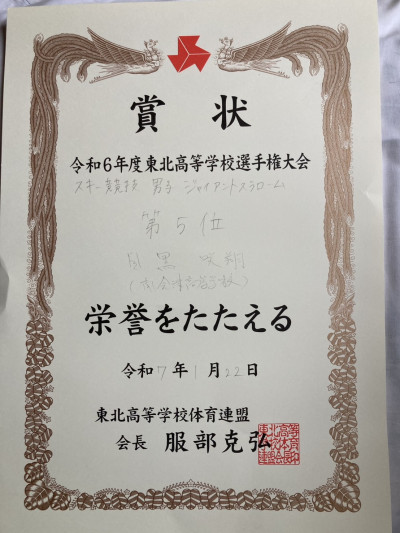 賞状
令和6年度東北高等学校選手権大会
スキー競技 男子 ジャイアントスラローム
第5位
目黒
栄誉をたたえる
令和7年1月22日
東北高等学校体育連盟
会長 服部克弘